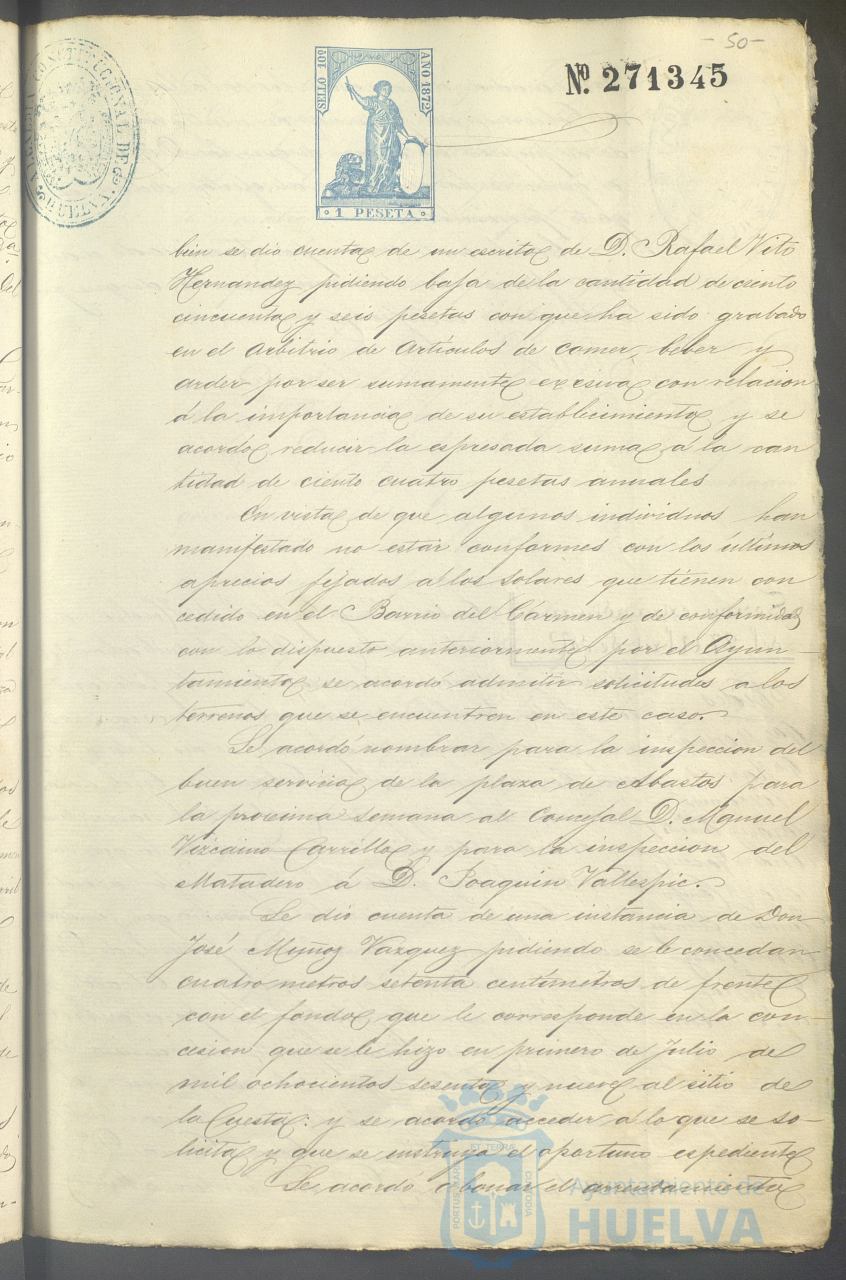 - 50 -
ALCALDIA CONSTITUCIONAL DE HUELVA
SELLO 10º AÑO 1872
1 PESETA
Nº 271345
bien se dio cuenta de un escrito de D. Rafael Vito
Hernandez pidiendo baja de la cantidad de ciento
cincuenta y seis pesetas con que ha sido grabado
en el arbitrio de Articulos de comer, beber y
arder por ser sumamente excesiva con relacion
á la importancia de su establecimiento y se
acordó reducir la espresada suma á la can
tidad de ciento cuatro pesetas anuales
En vista de que algunos individuos han
manifestado no estar conformes con los últimos
aprecios fijados á los solares que tienen con
cedido en el Barrio del Cármen y de conformidad
con lo dispuesto anteriormente por el Ayun-
tamiento se acordó admitir solicitudes a los
terrenos que se encuentren en este caso.
Se acordó nombrar para la inspeccion del
buen servicio de la plaza de Abastos para
la procsima semana al Concejal D. Manuel
Vizcaino Carrillo y para la inspeccion del
Matadero á D. Joaquin Vallespic.
Se dió cuenta de una instancia de Don
José Muñoz Vazquez pidiendo se le concedan
cuatro metros setenta centímetros de frente
con el fondo que le corresponde en la con-
cesion que se le hizo en primero de Julio de
mil ochocientos sesenta y nueve al sitio de
la Cuesta: y se acordó acceder á lo que se so-
licita y que se instruya el oportuno espediente
Se acordó abonar el arrendamiento
PORTUS MARIS ET TERRÆ CUSTODIA
Ayuntamiento de
HUELVA